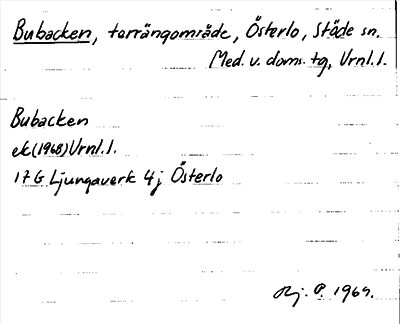 Bubacken, terrängområde, Österlo, Stöde sn.
Med. v. doms. tg, Vrnl. l.
Bubacken
ek (1968) Vrnl. l.
17 G Ljungaverk 4 j Österlo
P. 1969.